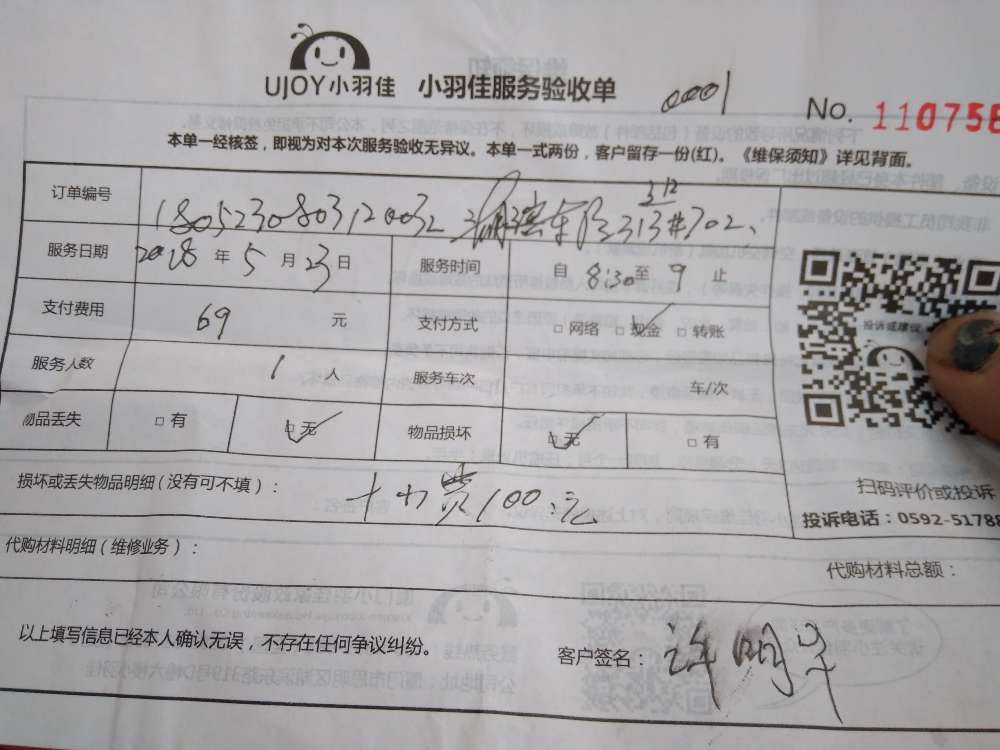 UJOY小羽佳 小羽佳服务验收单 0001 No. 110758
本单一经核签，即视为对本次服务验收无异议。本单一式两份，客户留存一份(红)。《维保须知》详见背面。
订单编号 1805230803120032 312 313#702、
服务日期 2018 年 5 月 23 日 服务时间 自 8:30 至 9 止
支付费用 69 元 支付方式 □ 网络 □ 现金 □ 转账
投诉或建议
服务人数 1 人 服务车次 车/次
物品丢失 □ 有 □ 无 物品损坏 □ 无 □ 有
损坏或丢失物品明细（没有可不填）： 费100元
扫码评价或投诉
投诉电话：0592-51788
代购材料明细（维修业务）：
代购材料总额：
以上填写信息已经本人确认无误，不存在任何争议纠纷。 客户签名： 明